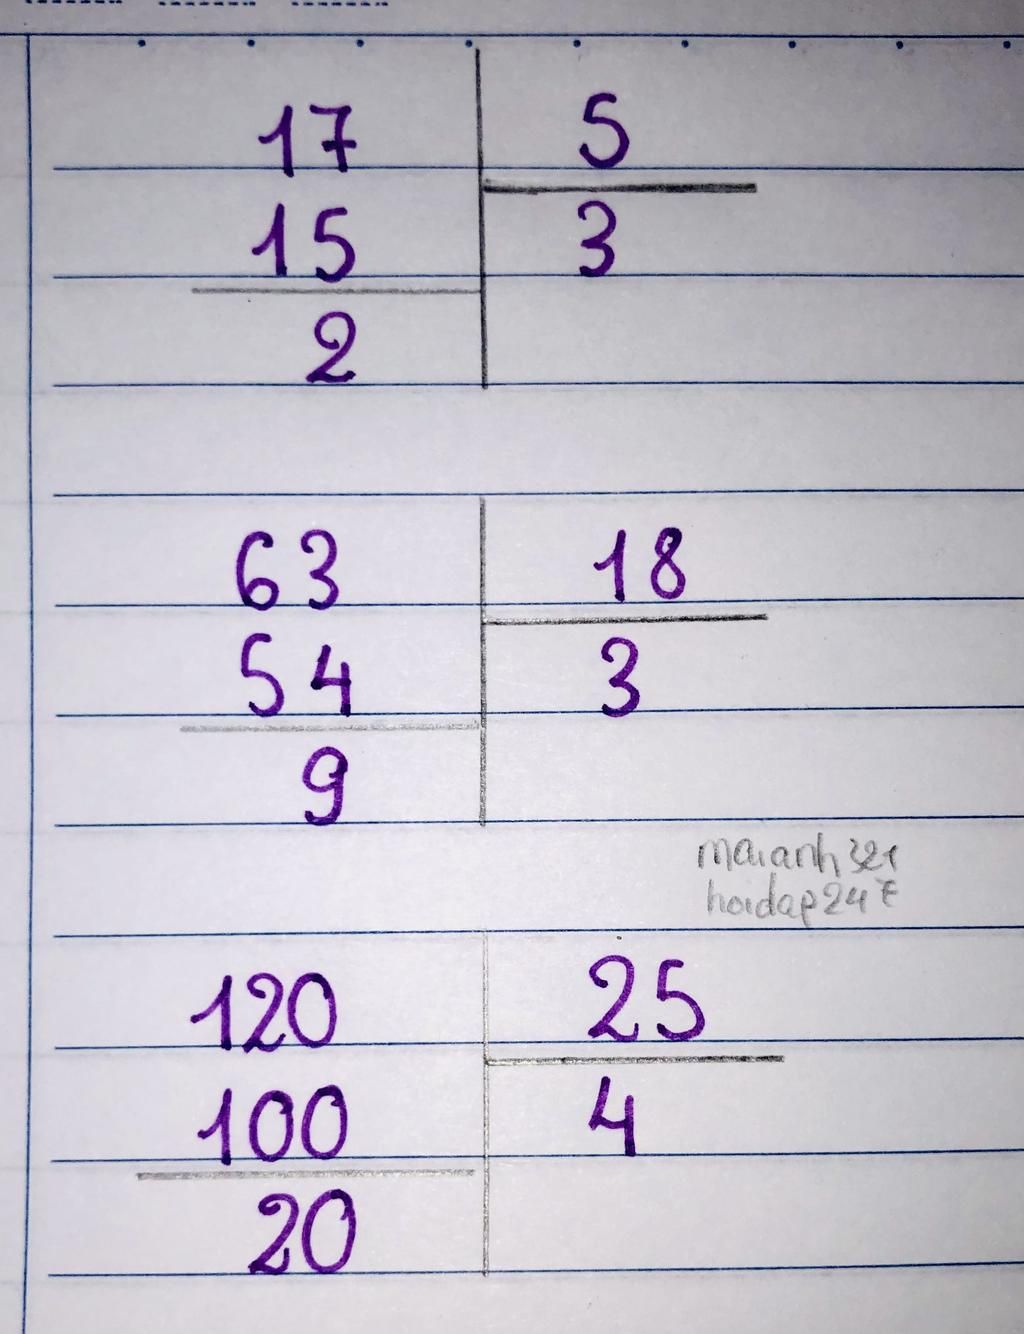 17 5
15 3
2
63 18
54 3
9
maianh321
hoidap247
120 25
100 4
20